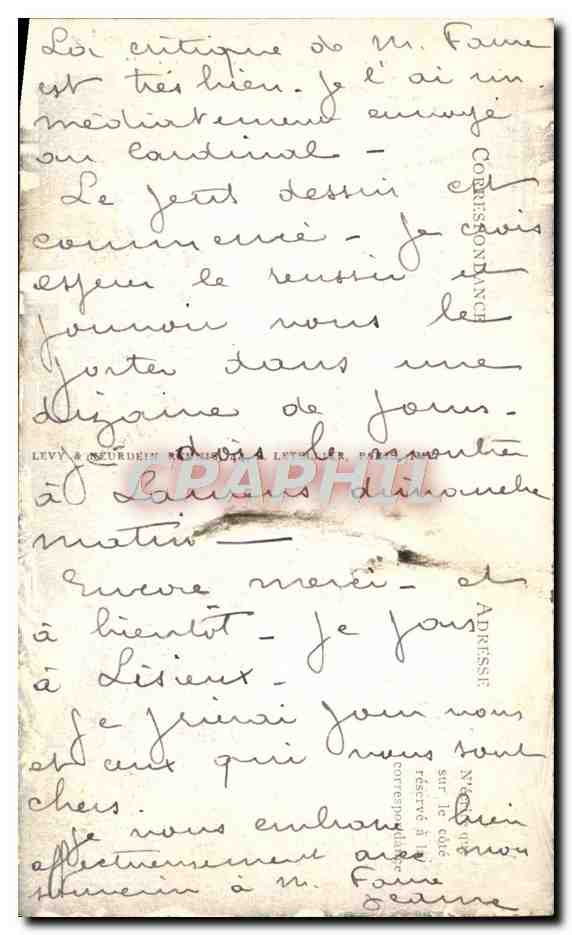 La critique de M. Faure
est très bien. Je l'ai im
médiatement envoyé
au Cardinal -
Le petit dessin est
commencé - Je crois
espérer le réussir et
pouvoir vous le
porter dans une
dizaine de jours -
Je dois le montrer
à Laurens dimanche
matin -
Encore merci - et
à bientôt - Je pars
à Lisieux -
Je prierai pour vous
et ceux qui vous sont
chers.
Je vous embrasse bien
affectueusement avec mon
souvenir à M. Faure
Jeanne
CORRESPONDANCE
LEVY & NEURDEIN RÉUNIS, 44, LETELLIER, PARIS
CPAPHIL
ADRESSE
sur le côté
réservé à la
correspondance